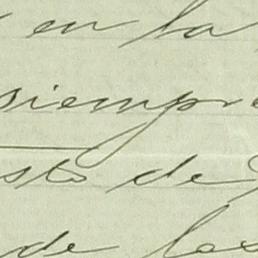 en la
siempre
sto de
de las